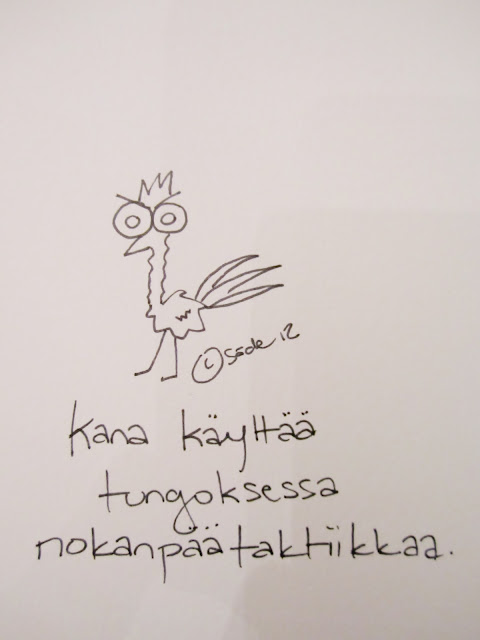 © Säde 12
Kana käyttää
tungoksessa
nokanpäätaktiikkaa.